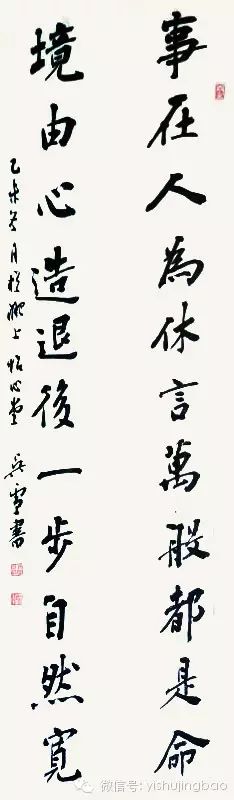 事在人為休言萬般都是命
境由心造退後一步自然寬
乙未冬月於滬上怡心堂 吳雪書
微信号: yishujingbao